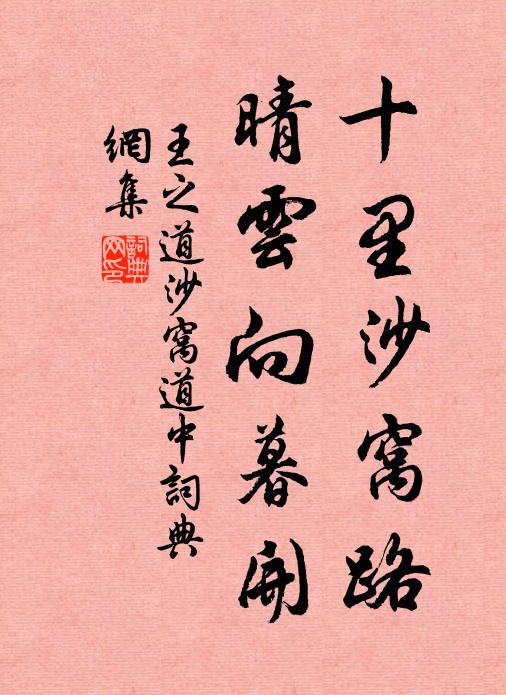 十里沙窩路
晴雲向暮開
王之道沙窩道中詞典
網集
詞典
网印